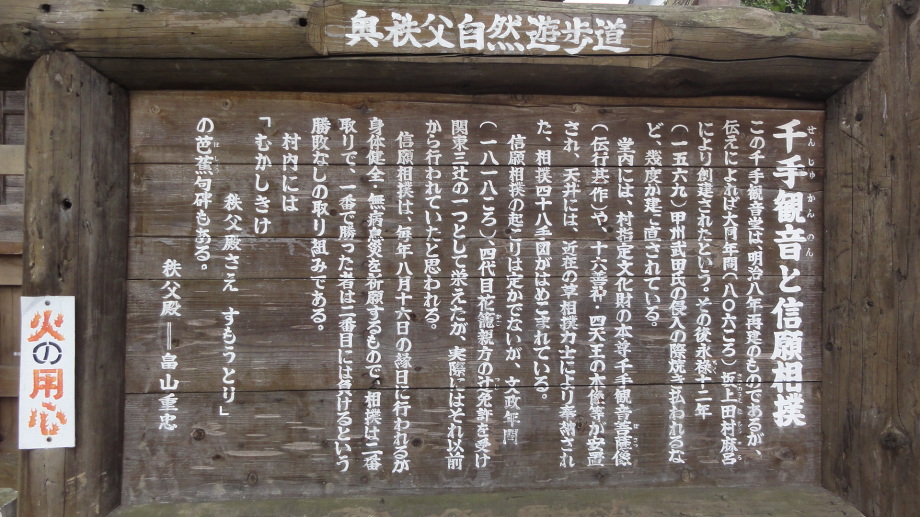 奥秩父自然遊歩道
千手観音と信願相撲
せんじゅかんのん
この千手観音堂は、明治八年再建のものであるが、
伝えによれば大同年間(八〇六ごろ)坂上田村麻呂
により創建されたという。その後永禄十二年
(一五六九)甲州武田氏の侵入の際焼き払われるな
ど、幾度か建て直されている。
堂内には、村指定文化財の本尊千手観音菩薩像
(伝行基作)や、十六善神・四天王の木像等が安置
され、天井には、近在の草相撲力士により奉納され
た、相撲四十八手図がはめこまれている。
信願相撲の起こりは定かでないが、文政年間
(一八一八ごろ)、四代目花籠親方の辻免許を受け
関東三辻の一つとして栄えたが、実際にはそれ以前
から行われていたと思われる。
信願相撲は、毎年八月十六日の縁日に行われるが
身体健全・無病息災を祈願するもので、相撲は二番
取りで、一番で勝った者は二番目には負けるという
勝敗なしの取り組みである。
村内には
「むかしきけ
秩父殿さえ すもうとり」
の芭蕉句碑もある。
秩父殿＝畠山重忠
火の用心